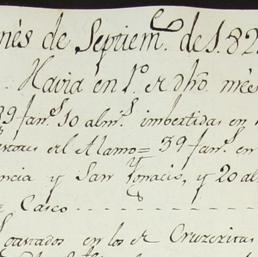 més de Septiem.^e de 1.82
Havia en 1.º de dho. més
39 fan.^s 10 alm.^s imbertidas en
del Alamo = 39 fan.^s en
encia y San Ygnacio, y 20 al
= Casco
gastados en los de Cruzeritas